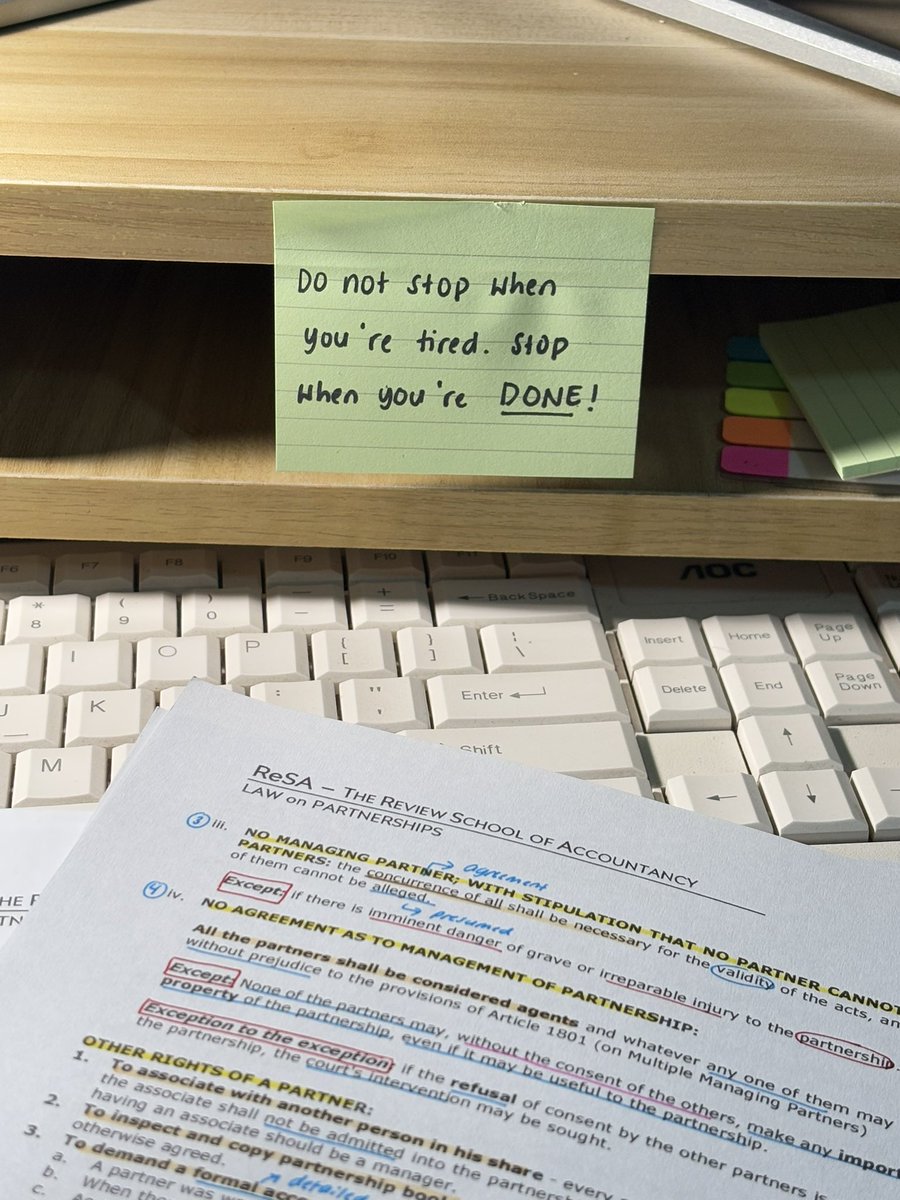 Do not stop when
you're tired. Stop
when you're DONE!
F6 F7 F8 F9 F10 F11
* 8 ( 9 ) 0 — - + = ← BackSpace
AOC
I O P { [ } ] ¦ \
Insert Home Page Up
J K : " ' Enter
Delete End Page Down
M Shift
↑
← ↓
ReSA – THE REVIEW SCHOOL OF ACCOUNTANCY
LAW on PARTNERSHIPS
③ iii. NO MANAGING PARTNER; WITH STIPULATION THAT NO PARTNER CANNOT
agreement
PARTNERS: the concurrence of all shall be necessary for the validity of the acts,
of them cannot be alleged.
presumed
Except: if there is imminent danger of grave or irreparable injury to the partnership.
④ iv. NO AGREEMENT AS TO MANAGEMENT OF PARTNERSHIP:
All the partners shall be considered agents and whatever any one of them may
without prejudice to the provisions of Article 1801 (on Multiple Managing Partners)
Except: None of the partners may, without the consent of the others, make any
property of the partnership, even if it may be useful to the partnership.
Exception to the exception: if the refusal of consent by the other partners is
the partnership, the court's intervention may be sought.
OTHER RIGHTS OF A PARTNER:
1. To associate with another person in his share - every
the associate shall not be admitted into the
having an associate should be a manager.
2. To inspect and copy partnership
otherwise agreed.
3. To demand a formal
detailed
a. A partner was
b. When the
c.